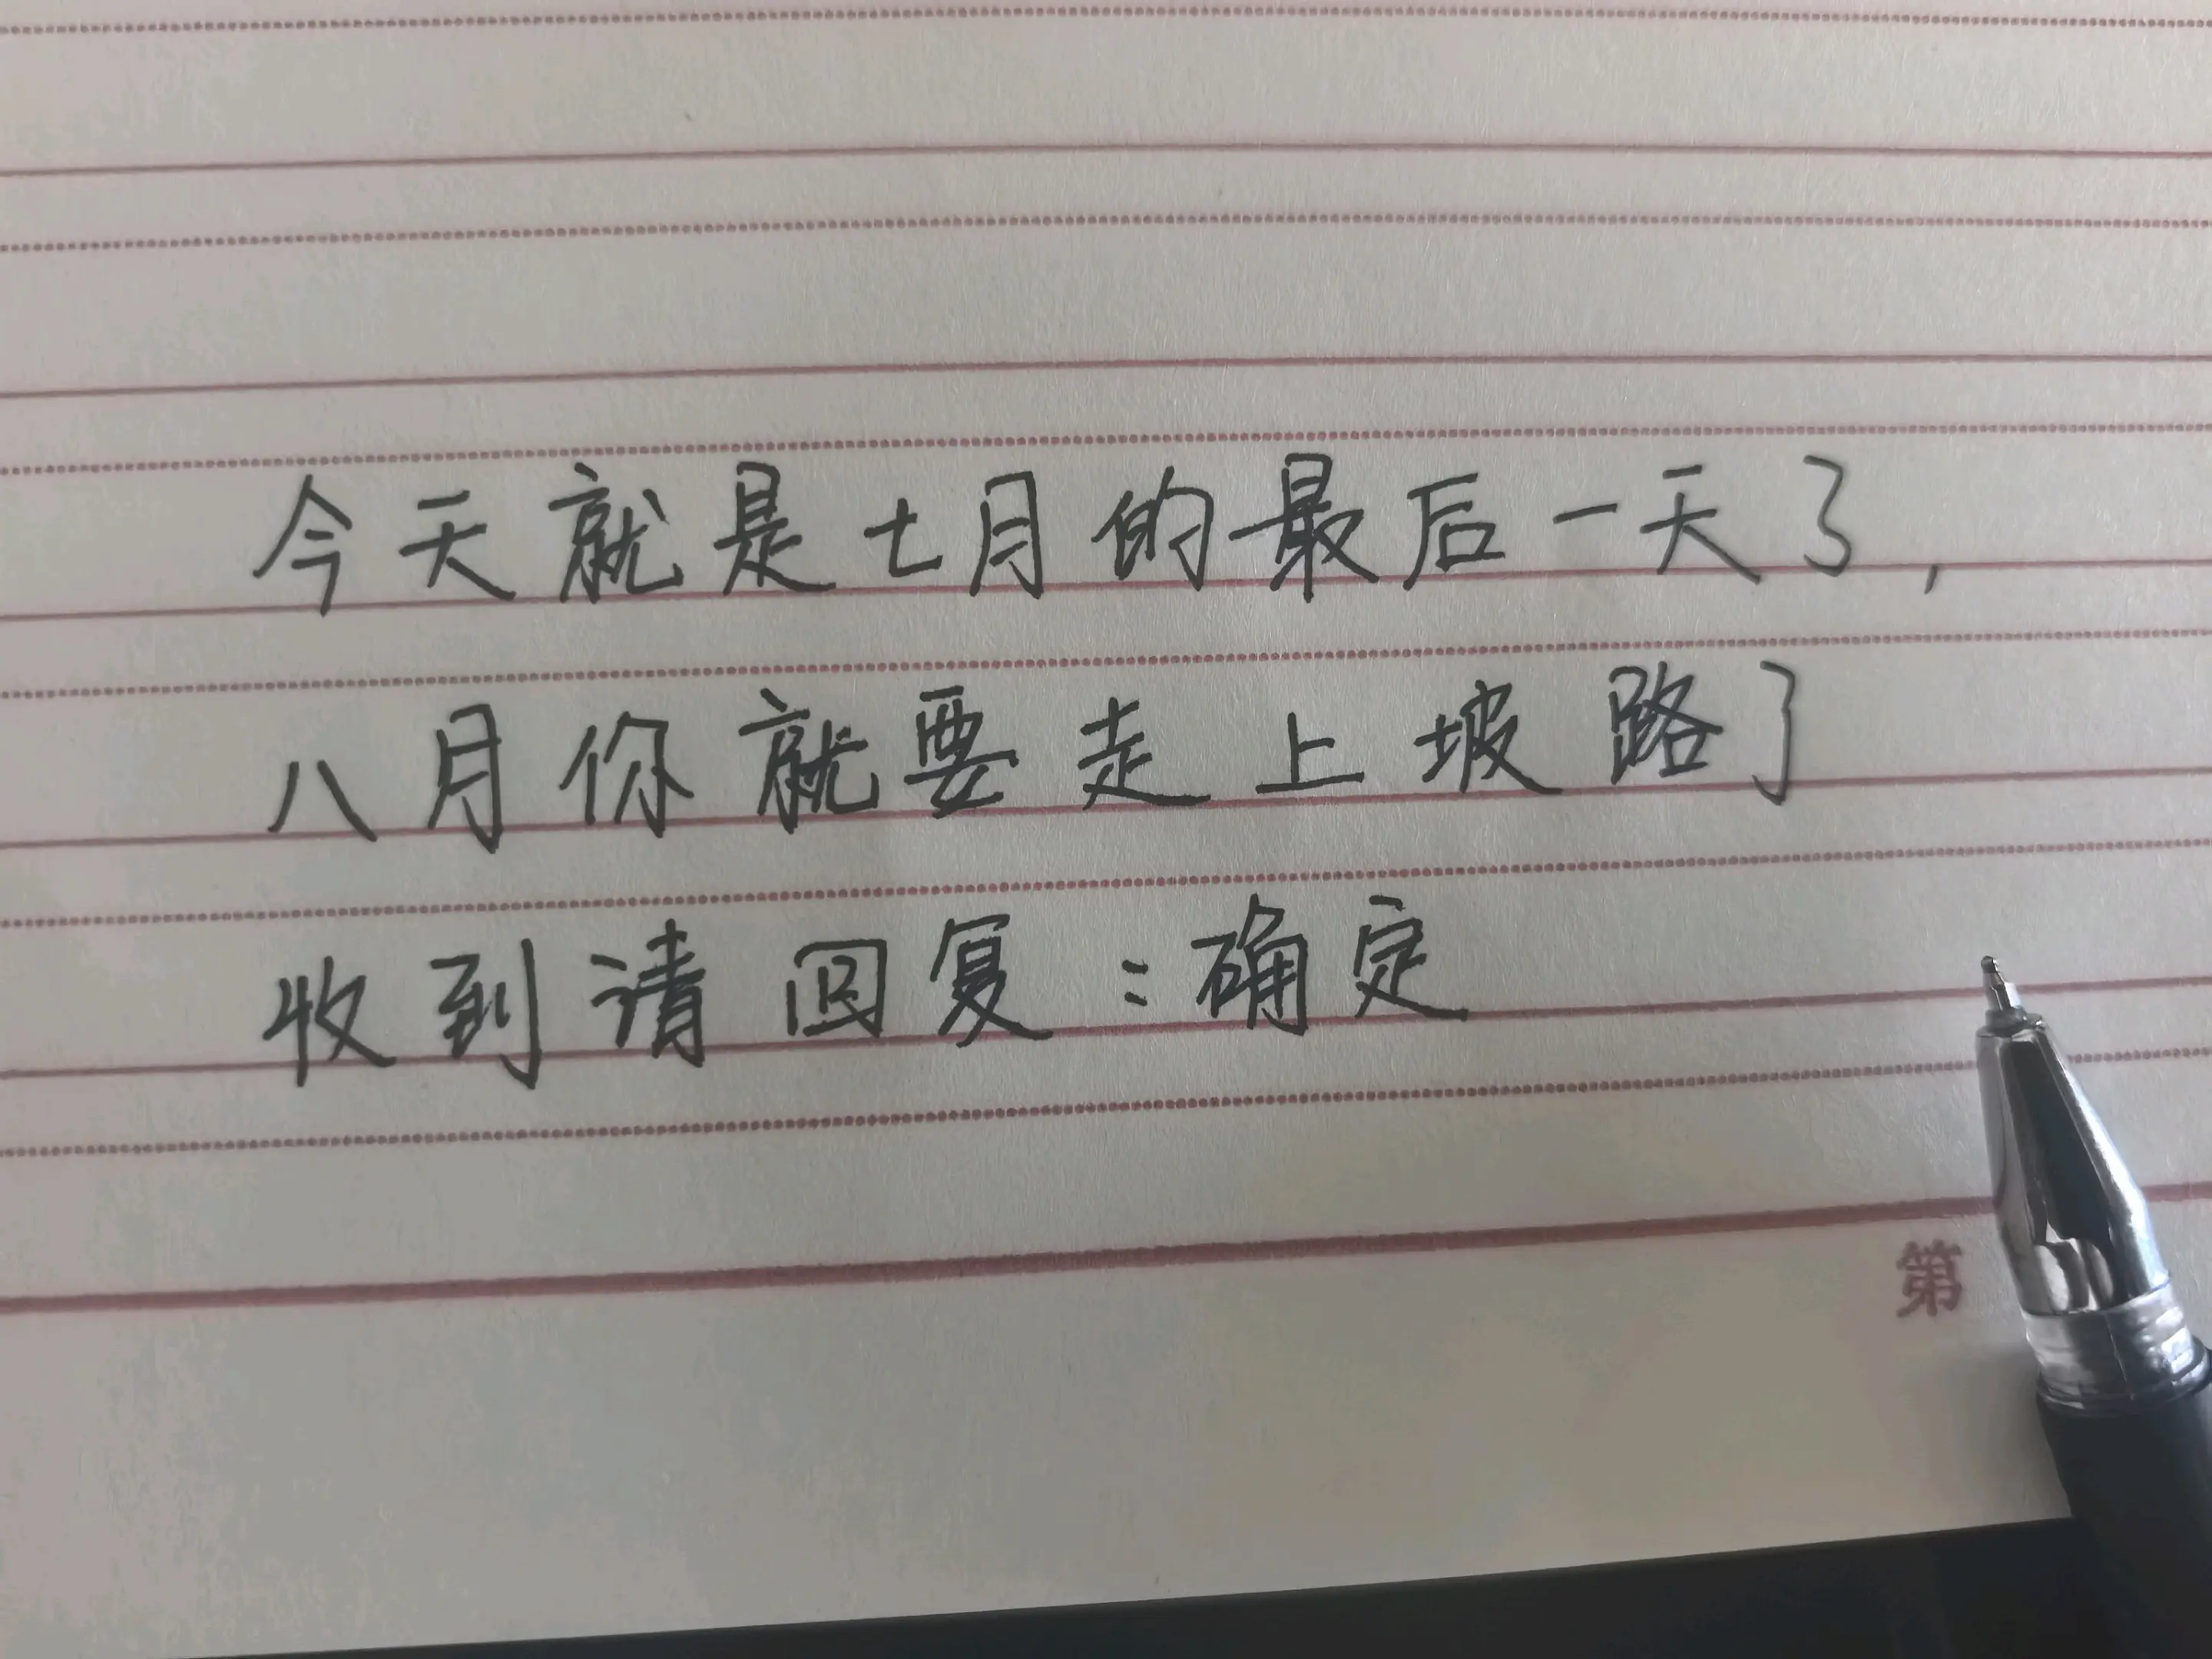 今天就是七月的最后一天了,
八月你就要走上坡路了
收到请回复:确定
第